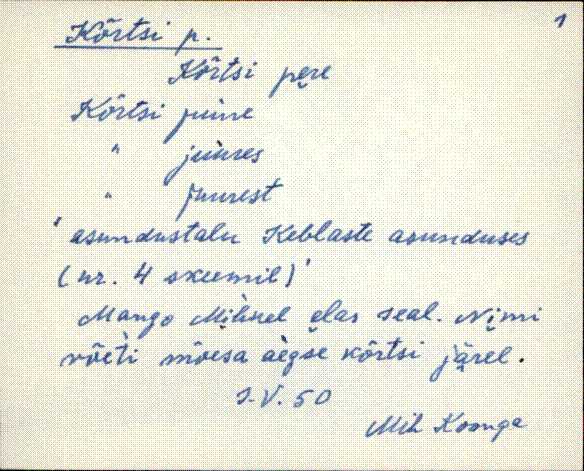 1
Kõrtsi p.
Kõrtsi pere
Kõrtsi juure
" juures
" juurest
' asundustalu Keblaste asunduses
(nr. 4 skeemil)'
Mango Mihkel elas seal. Nimi
võeti mõesa aegse kõrtsi järel.
S-V. 50
Mih Koonga